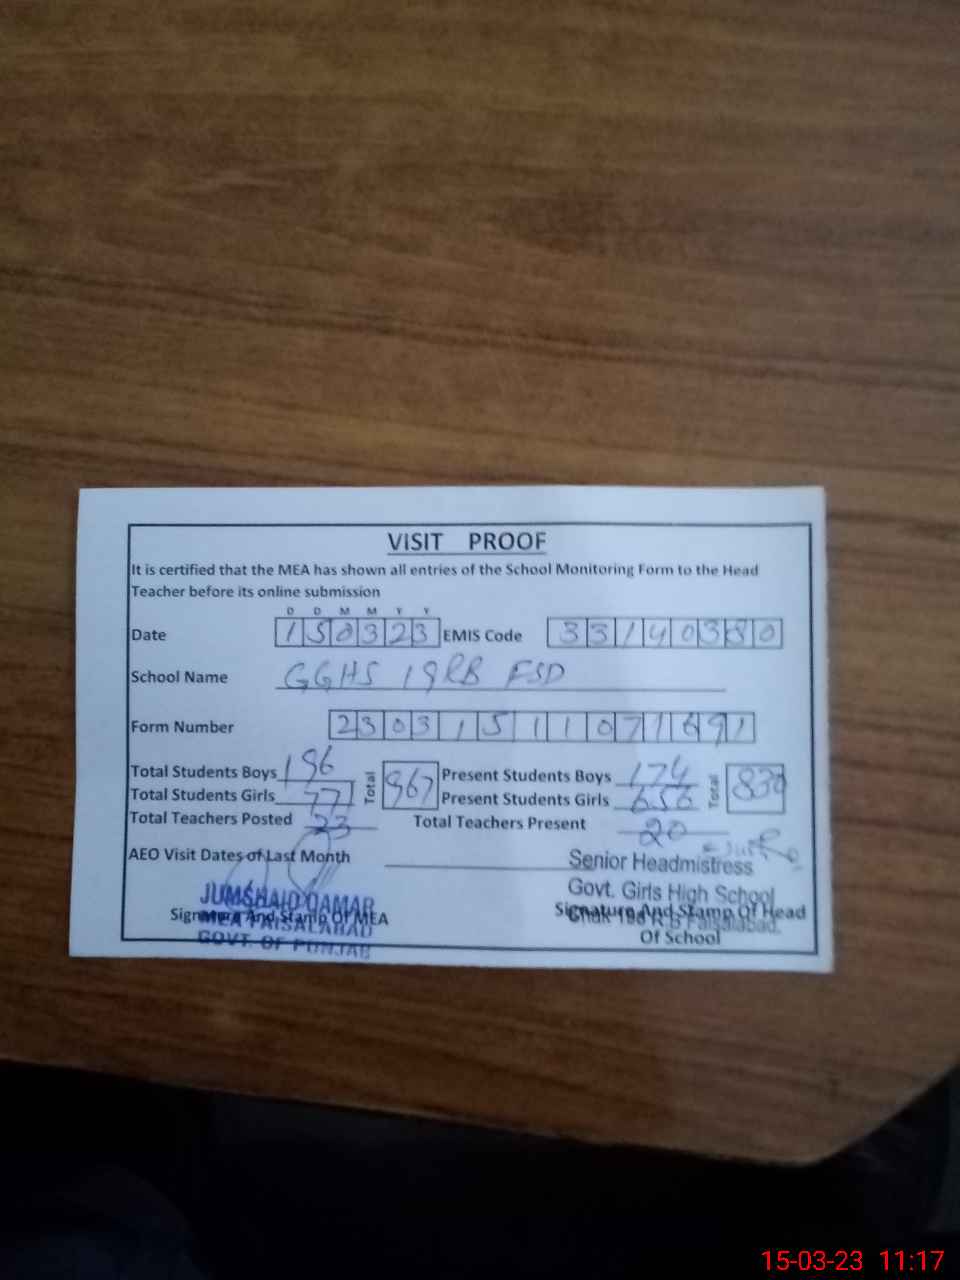 VISIT PROOF
It is certified that the MEA has shown all entries of the School Monitoring Form to the Head
Teacher before its online submission
D D M M Y Y
Date 150323 EMIS Code 33140380
School Name GGHS 19RB FSD
Form Number 2303151107
Total Students Boys 196 Total 967 Present Students Boys 174 Total 830
Total Students Girls Present Students Girls 656
Total Teachers Posted 23 Total Teachers Present 20
AEO Visit Dates of Last Month
Senior Headmistress
Govt. Girls High School
Chak R.B Faisalabad.
JUMSHAID QAMAR
MEA FAISALABAD
GOVT. OF PUNJAB
Signature And Stamp Of MEA
Signature And Stamp Of Head
Of School
15-03-23 11:17